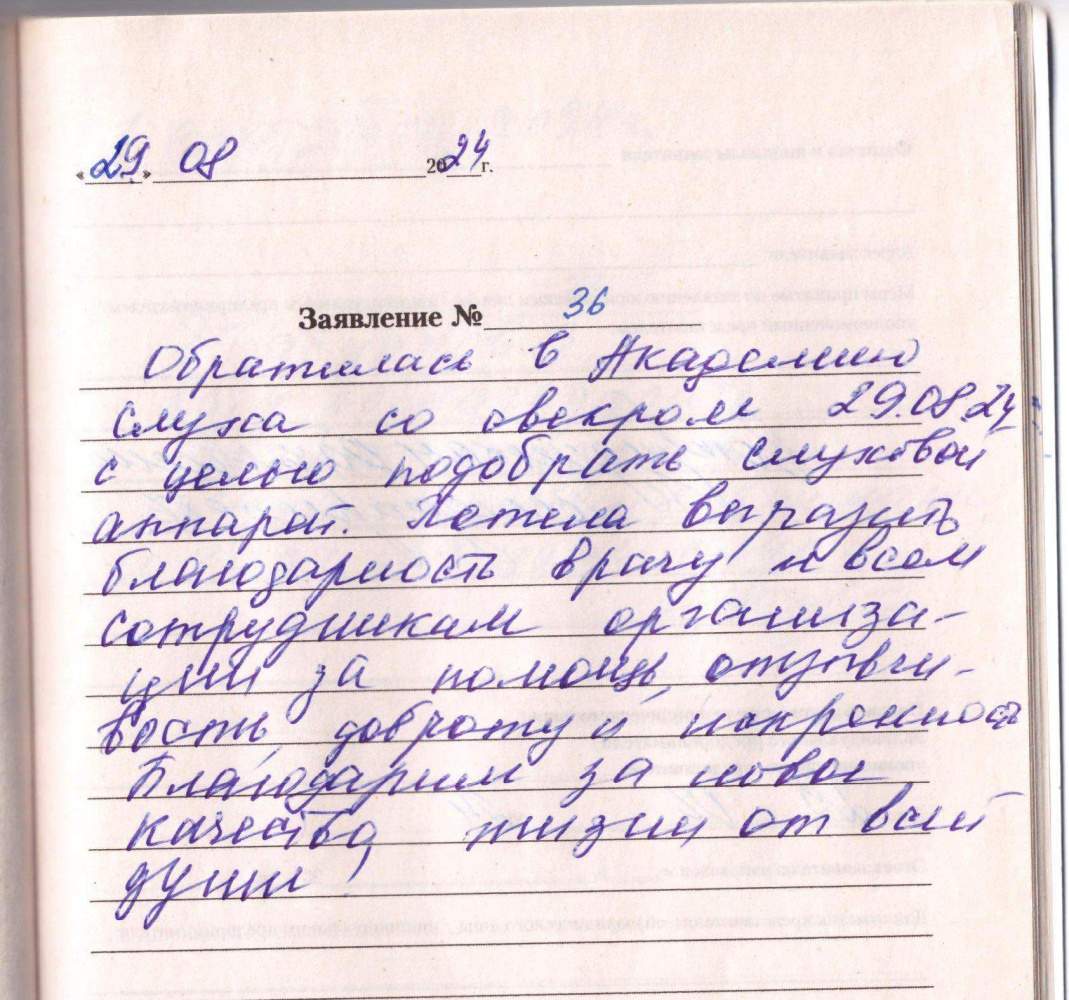 «29» 08 2024 г.
Заявление № 36
Обратилась в Академию
слуха со свекром 29.08.24
с целью подобрать слуховой
аппарат. Хотела выразить
благодарность врачу и всем
сотрудникам организа-
ции за помощь, отзывчи-
вость, доброту и
Благодарим за новое
качество жизни, от всей
души!